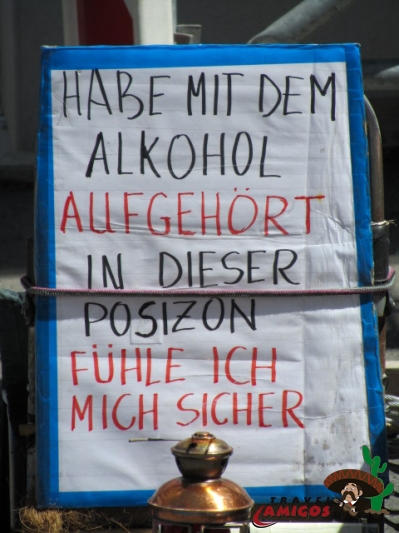 HABE MIT DEM
ALKOHOL
AUFGEHÖRT
IN DIESER
POSIZON
FÜHLE ICH
MICH SICHER
TRAVEL
AMIGOS